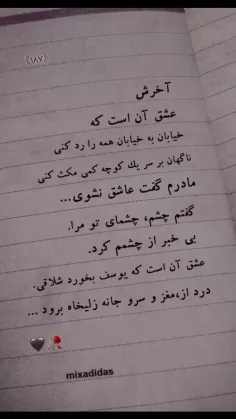 (۱۸۷)
آخرش
عشق آن است که
خیابان به خیابان همه را رد کنی
ناگهان بر سر یك کوچه کمی مکث کنی
مادرم گفت عاشق نشوی...
گفتم چشم، چشمای تو مرا.
بی خبر از چشمم کرد.
عشق آن است که یوسف بخورد شلاقی.
درد از،مغز و سرو جانه زلیخاه برود ...
mixadidas